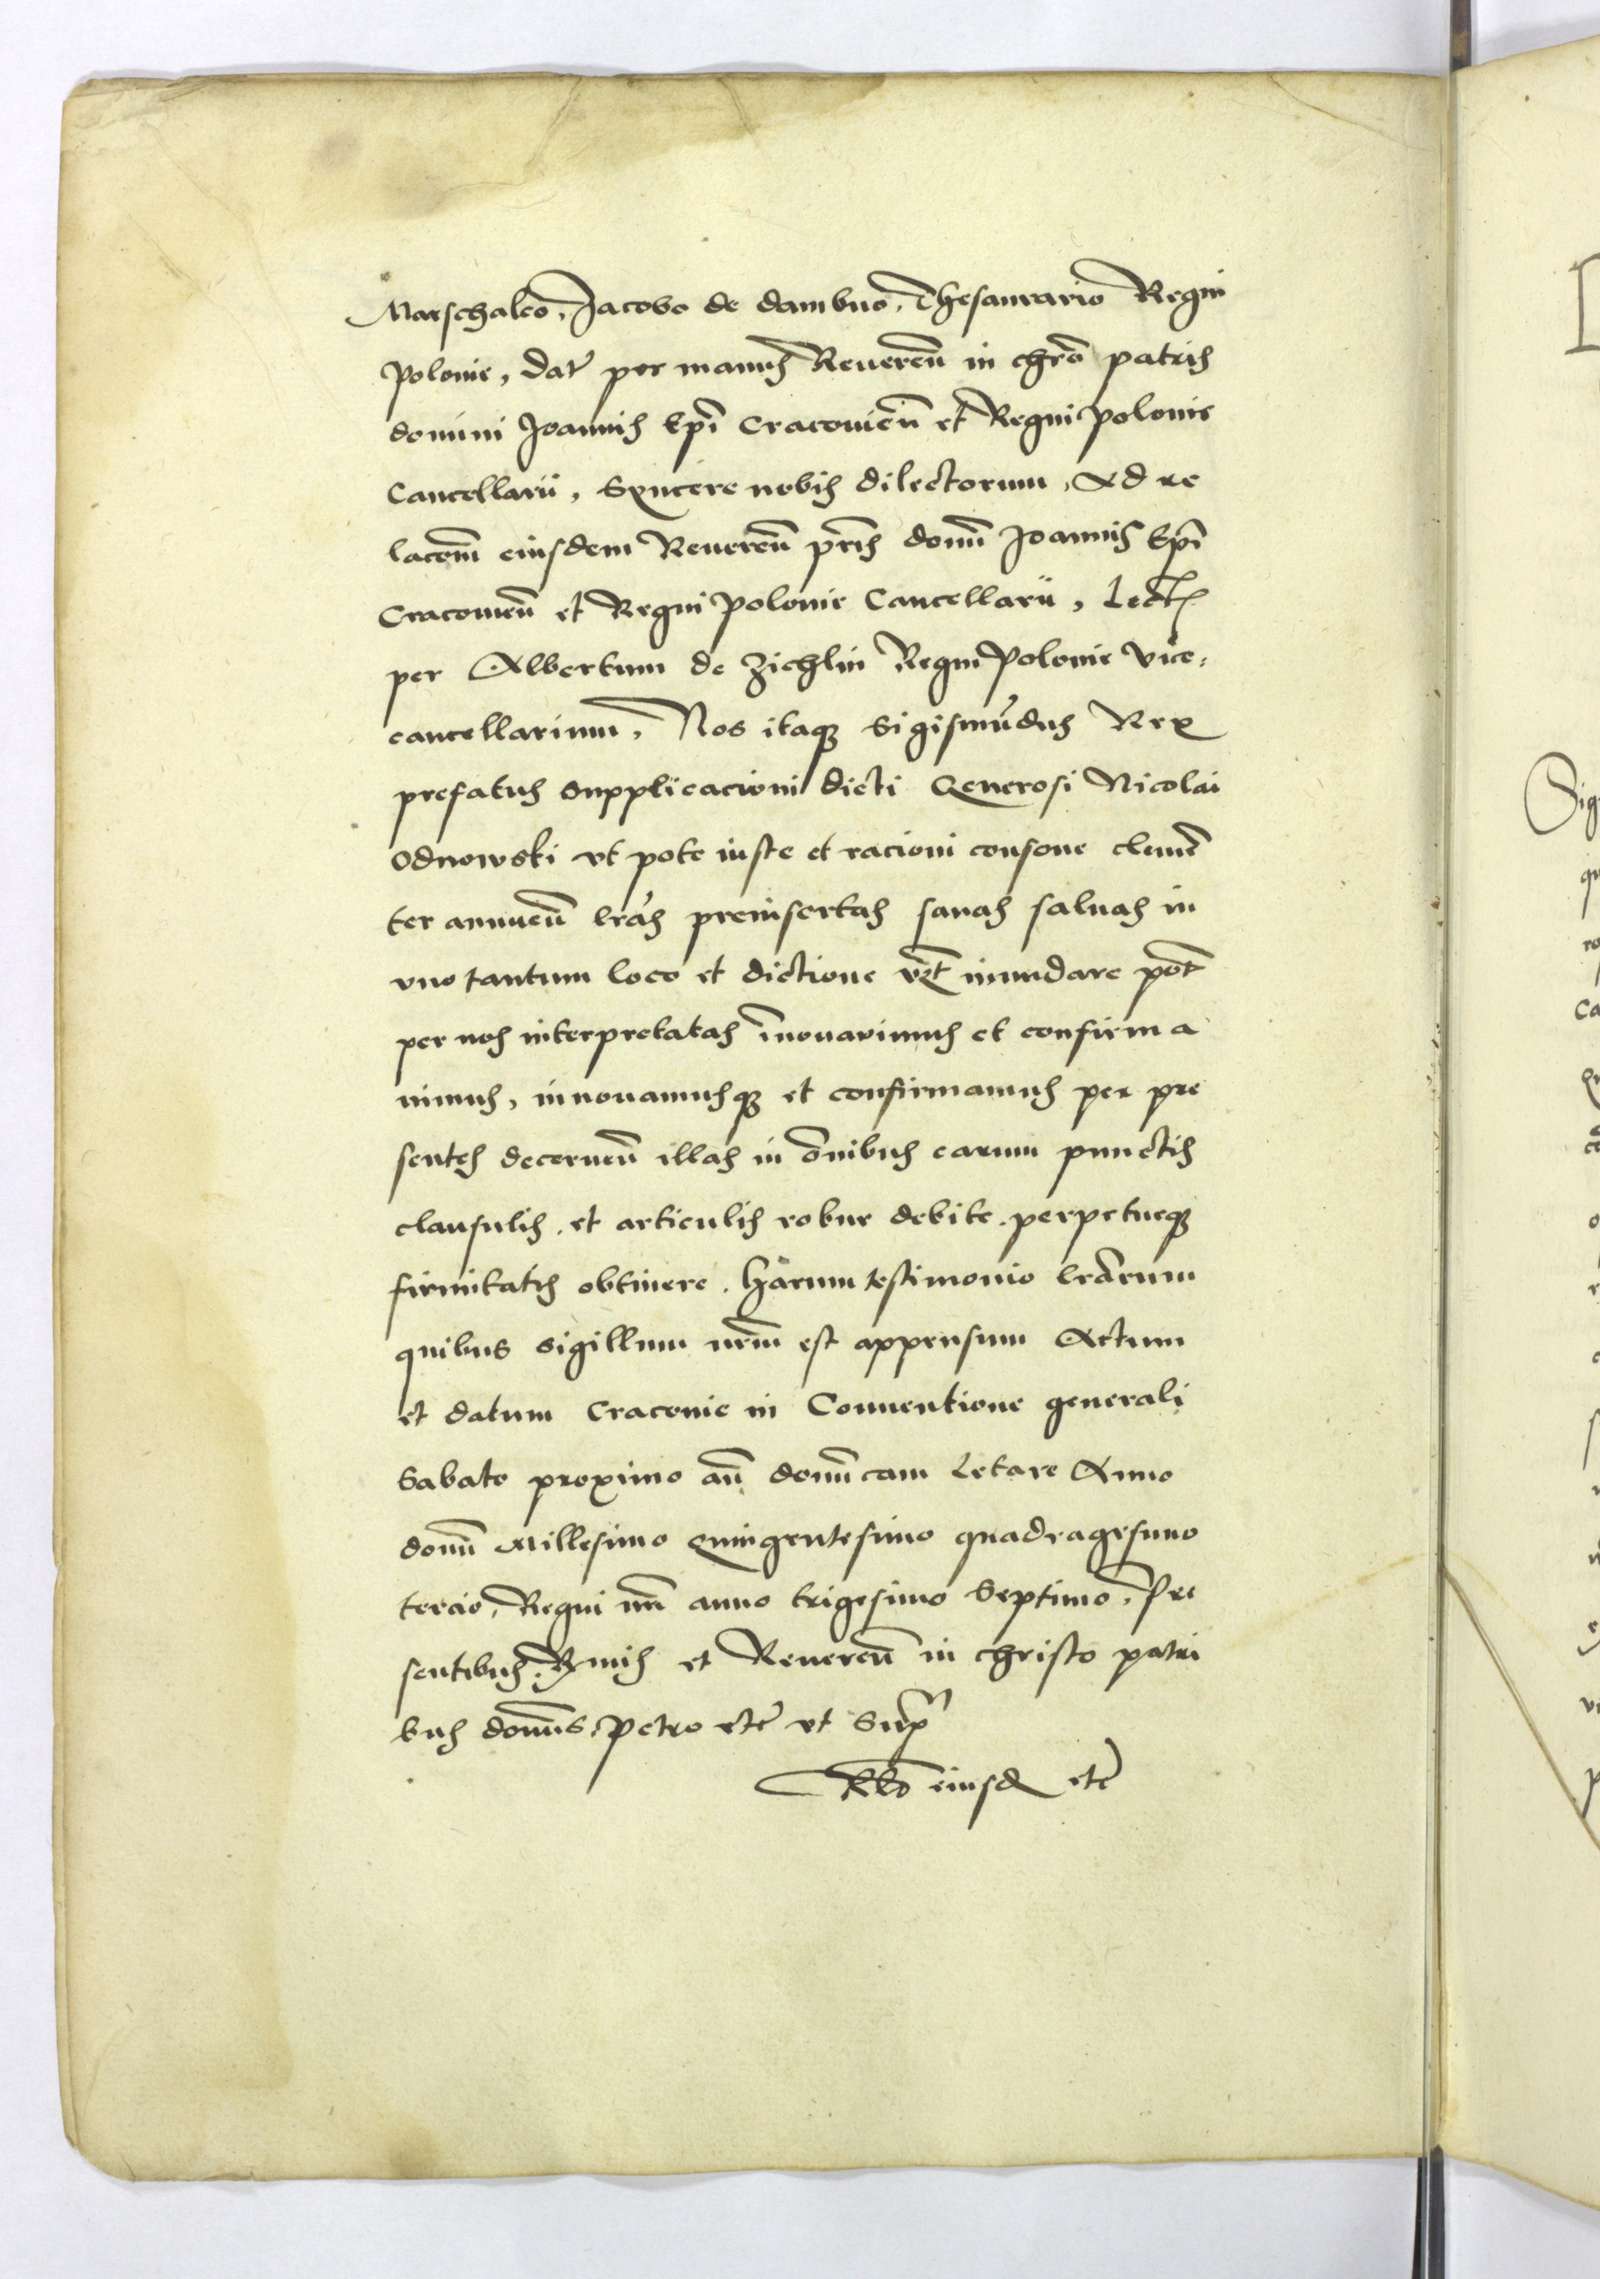 Marschalco, Jacobo de dambno, Thesaurario Regni
Polonie, dat̃ per manus Reuereñ in chr̃o patris
domini Joannis Ep̃i Cracouieñ et Regni Polonie
Cancellarii, Syncere nobis dilectorum, Ad re
lacõem eiusdem Reuereñ pr̃is domĩ Joannis Ep̃i
Cracouieñ et Regni Polonie Cancellarii, Lect
per Albertum de Zichlin Regni Polonie Vice,
cancellarium, Nos itaq Sigismũdus Rex
prefatus Supplicacioni dicti Generosi Nicolai
Odnowski vt pote iuste et racioni consone clemẽ
ter annueñ lr̃as preinsertas sanas saluas in
vno tantum loco et dictione vz̃t inundare põt
per nos interpretatas ĩnouauimus et confirma
uimus, innouamusq et confirmamus per pre
sentes decerneñ illas in õnibus earum punctis
clausulis et articulis robur debite perpetueq
firmitatis obtinere. Harum testimonio lr̃arum
quibus Sigillum nr̃m est appensum Actum
et datum Cracouie in Conuentione generali
Sabato proximo añ domĩcam Letare Anno
domĩ Millesimo quingentesimo quadragesimo
tercio, Regni nr̃i anno trigesimo Septimo, Pre
sentibus Rmis et Reuereñ in christo patri
bus domĩs, Petro etc̃ vt Sup
eiusd etc̃
Sig